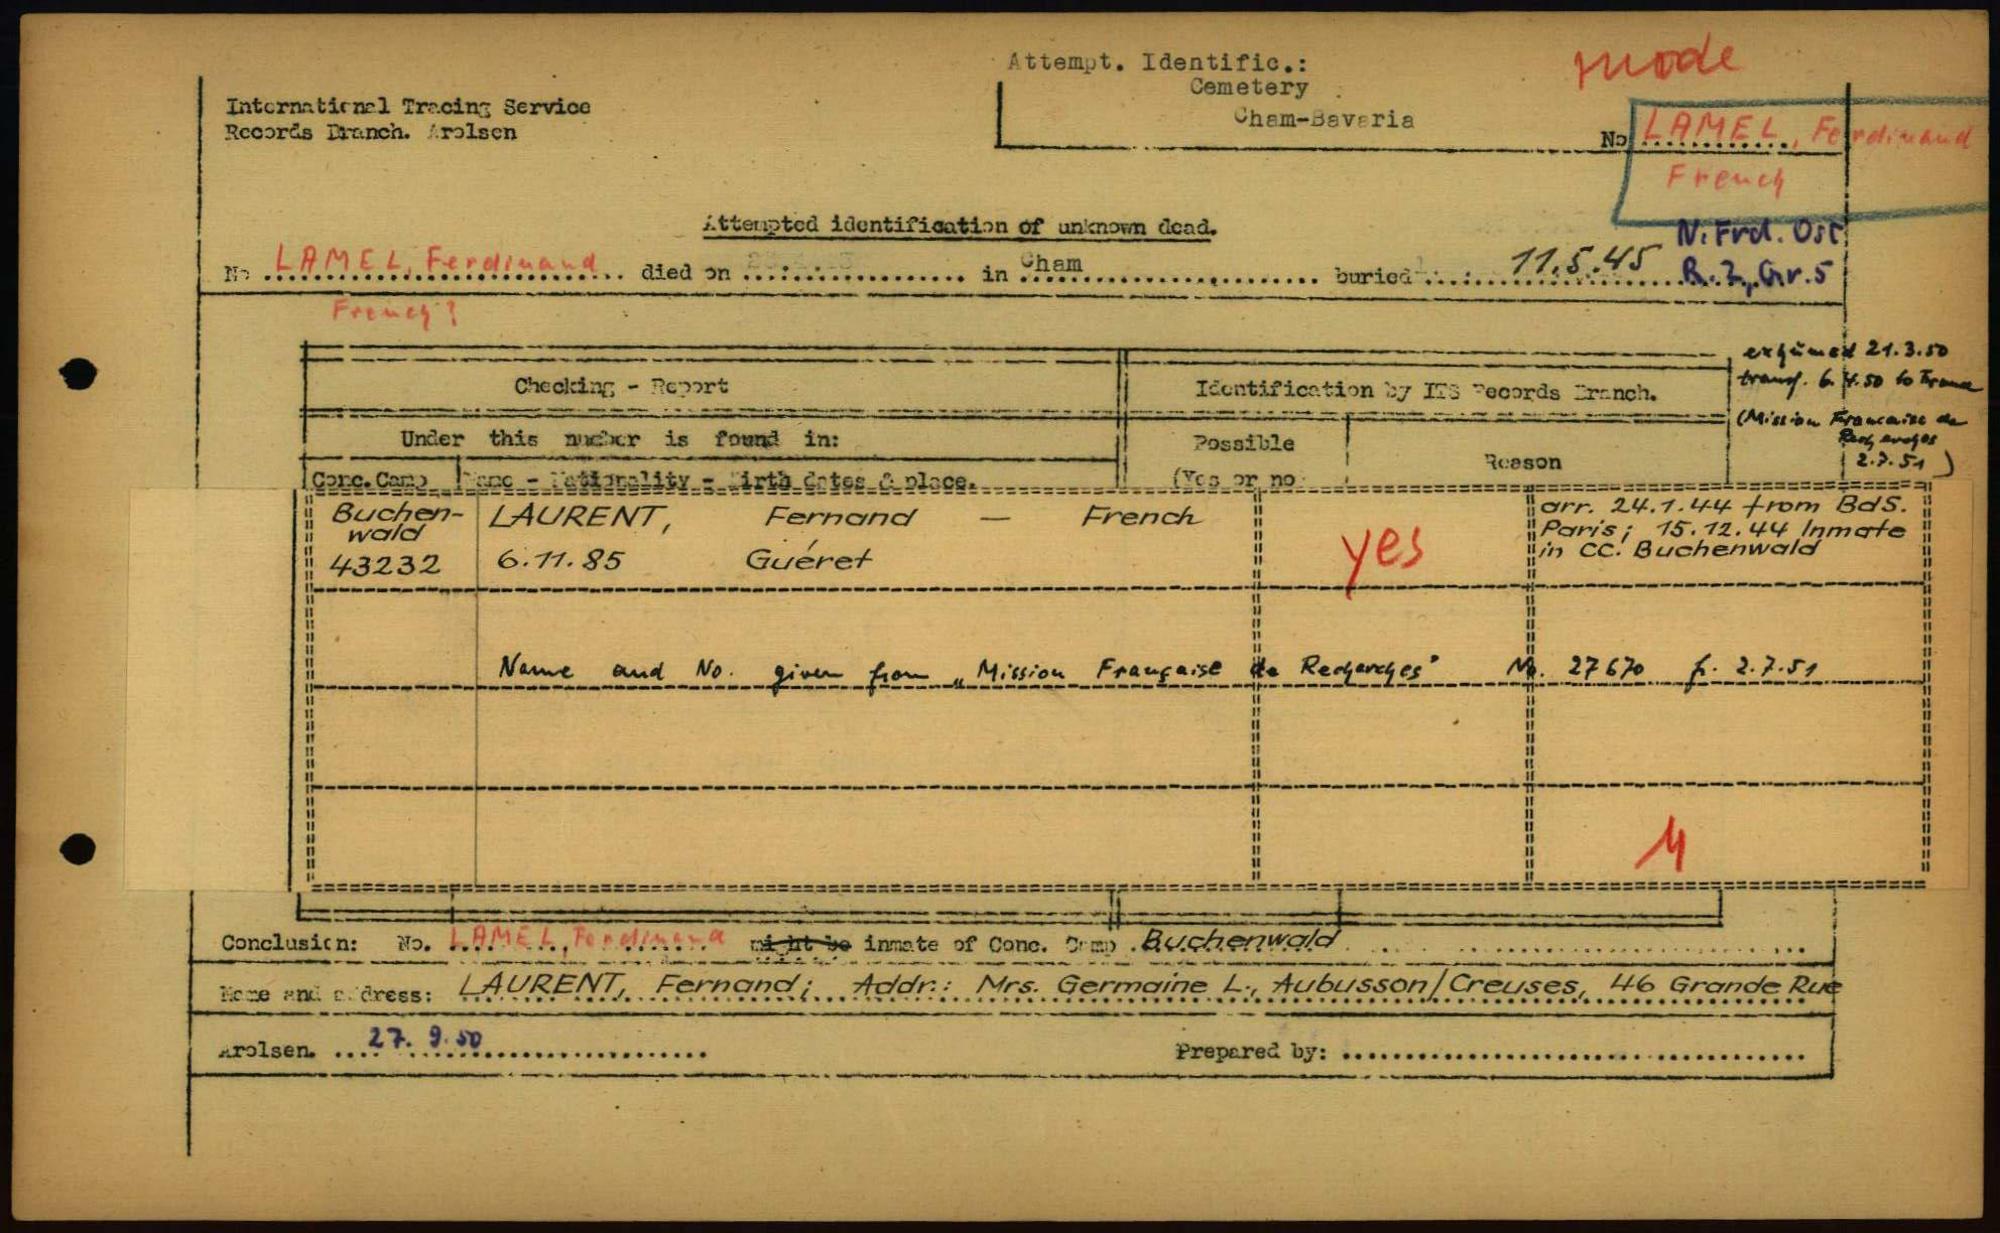 Attempt. Identific.:
Cemetery
Cham-Bavaria
International Tracing Service
Records Branch. Arolsen
No LAMEL, Ferdinand
French
Attempted identification of unknown dead.
N. Frd. Ost
No LAMEL, Ferdinand died on in Cham buried 11.5.45 R. 2, Gr. 5
French?
exhumed 21.3.50
transf. 6.4.50 to France
(Mission Francaise de
Recherches
2.7.51)
Checking - Report
Identification by ITS Records Branch.
Under this number is found in:
Possible
(Yes or no
Reason
Conc. Camp Name - Nationality - Birth dates & place.
Buchen-
wald
43232
LAURENT, Fernand - French
6.11.85 Guéret
yes
arr. 24.1.44 from BdS.
Paris; 15.12.44 Inmate
in CC. Buchenwald
Name and No. given from "Mission Française de Recherches" No. 27670 f. 2.7.51
Conclusion: No. LAMEL, Ferdinand might be inmate of Conc. Camp Buchenwald
Name and address: LAURENT, Fernand; Addr.: Mrs. Germaine L., Aubusson/Creuses, 46 Grande Rue
Arolsen. 27. 9. 50
Prepared by: